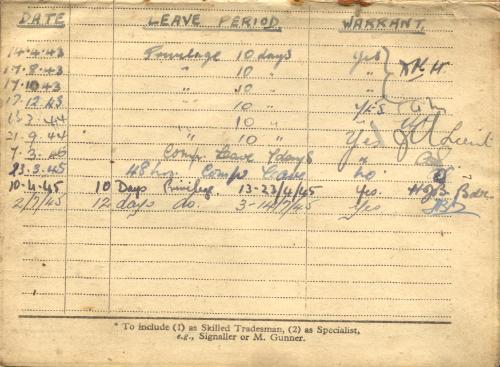 DATE LEAVE PERIOD. WARRANT.
14.4.43 Privilege 10 days Yes
17.8.43 " 10 " "
17.10.43 " 10 " "
17.12.43 " 10 " YES
44 " 10 "
21.9.44 " 10 " Yes
7.3.45 Comp. Leave 7 days "
23.3.45 48 hrs. Comp Leave no
10.4.45 10 Days Privileg 13-23/4/45 Yes.
2/7/45 12 days do. 3-14/7/45 Yes
* To include (1) as Skilled Tradesman, (2) as Specialist,
e.g., Signaller or M. Gunner.